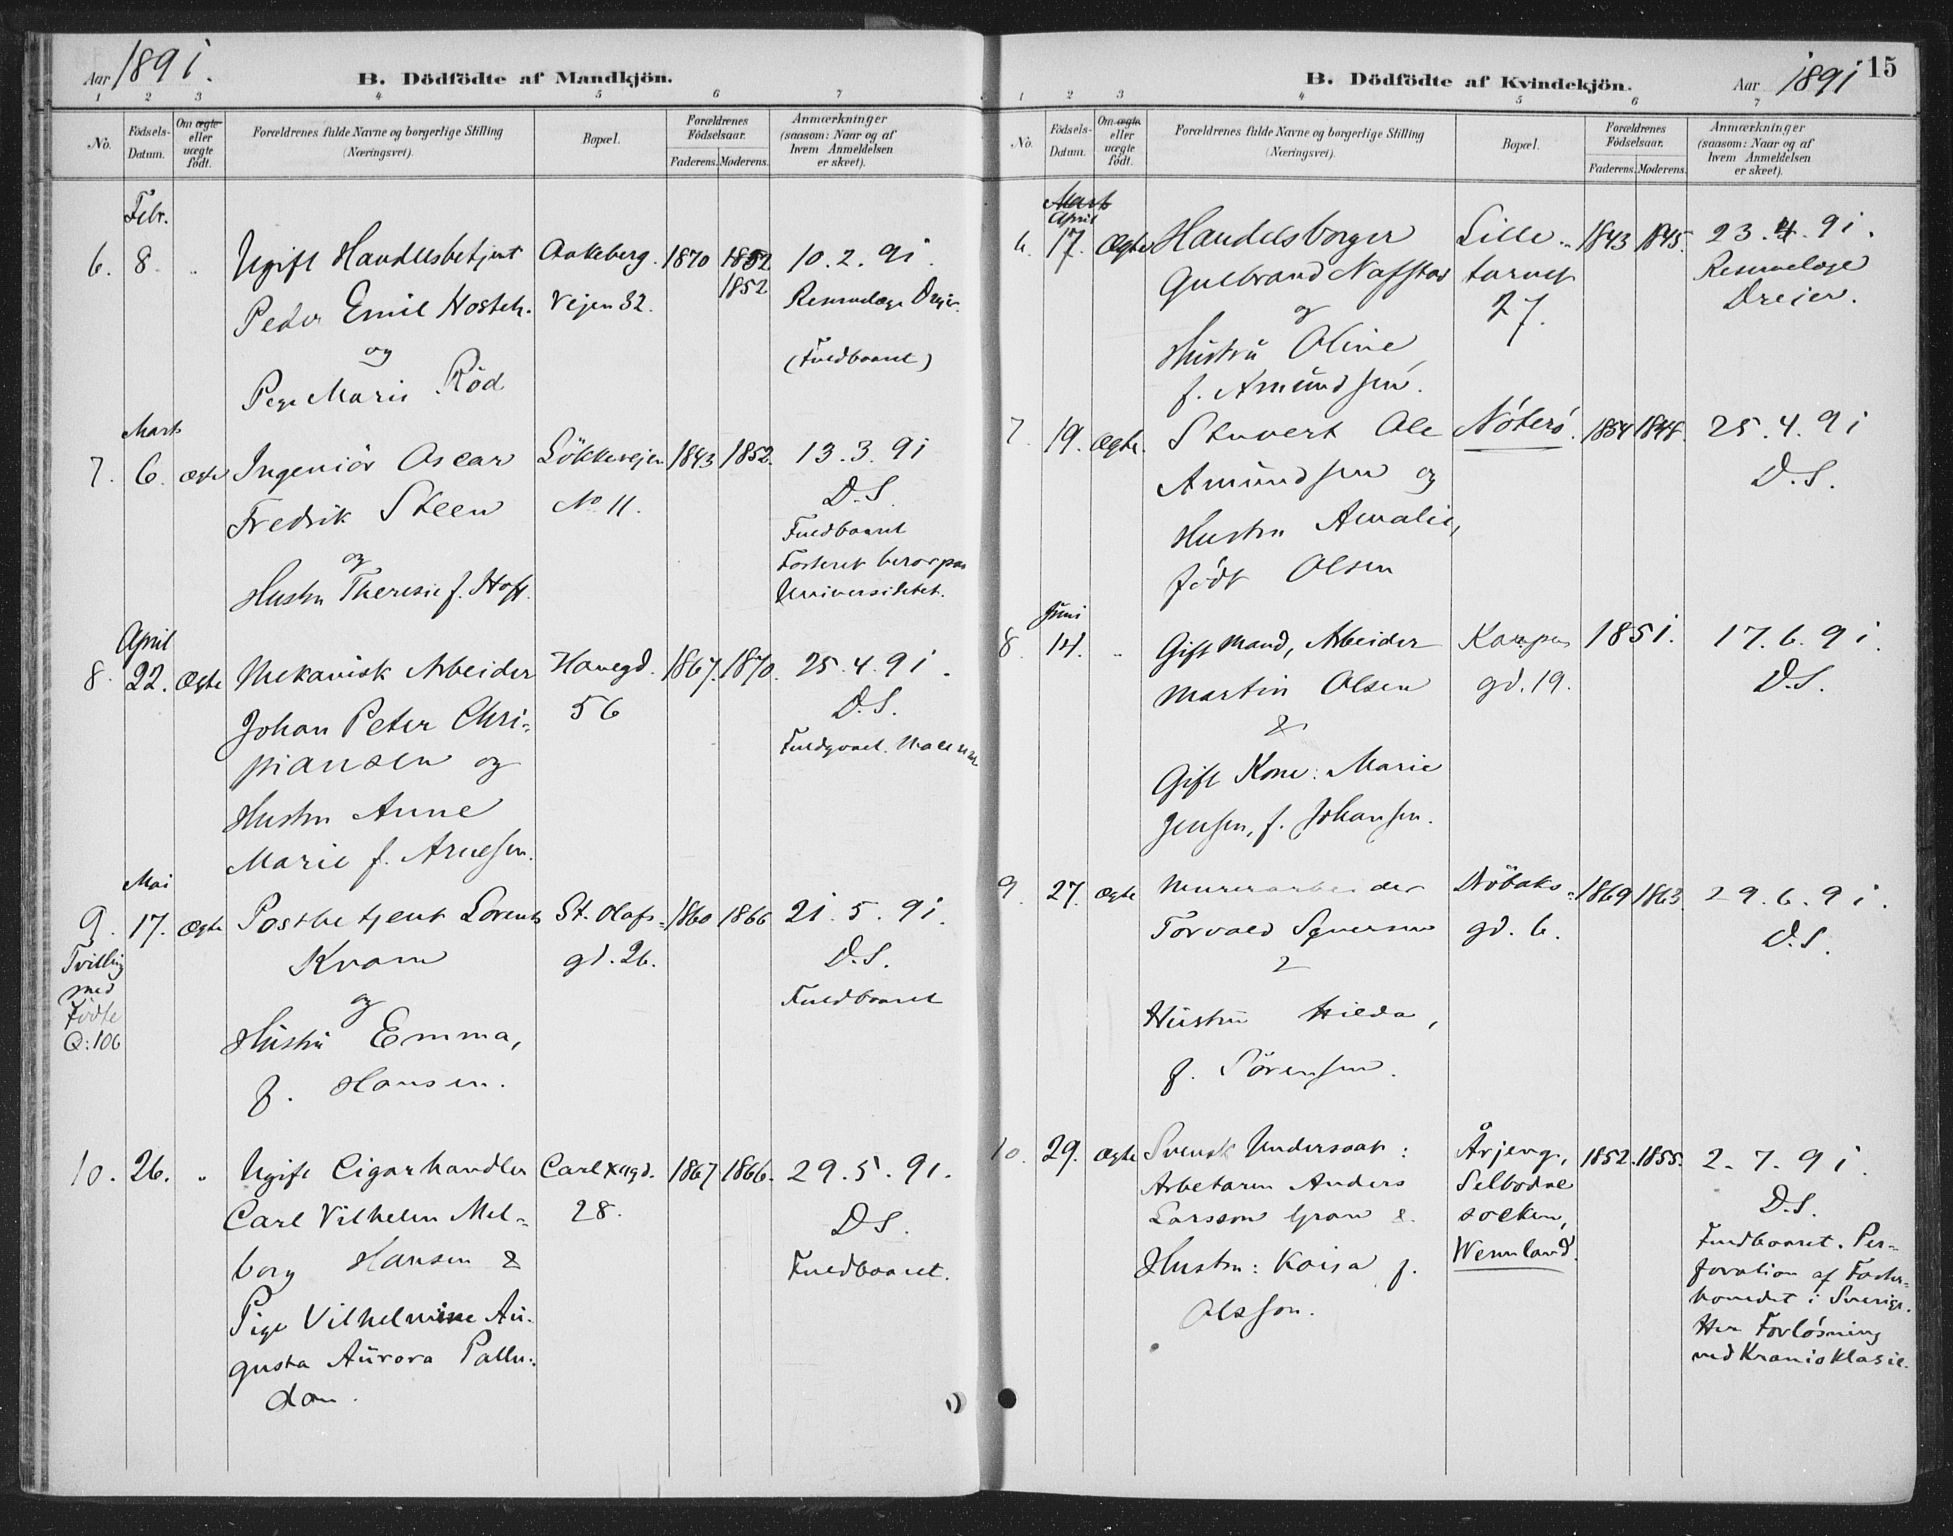 Aar 1891.
B. Dödfödte af Mandkjön.
1 2 3 4 5 6 7
No.
Födsels-
Datum.
Om ægte
eller
uægte
født.
Forældrenes fulde Navne og borgerlige Stilling
(Næringsvei).
Bopæl.
Forældrenes
Födselsaar.
Faderens. Moderens.
Anmærkninger
(saasom: Naar og af
hvem Anmeldelsen
er skeet).
Febr.
6. 8. " Ugift Handelsbetjent Aakeberg. 1870 1852 10.2.91.
Peder Emil Vejen 32. 1852
(Fuldbaaret)
og
Pige Marie Röd
Mart
7. 6. ægte Ingeniör Oscar Lökkevejen 1843 1852. 13.3.91
Fredrik Steen No 11. D.S.
Fuldbaaret
og
Fosteret beror paa
Hustru Theresie f. Hoff. Universitetet.
April
8. 22. ægte Mekanisk Arbeider Hauegd. 1867. 1870. 25.4.91.
Johan Peter Chri- 56 D.S.
stiansen og
Hustru Anne
Marie f. Arnesen.
Mai
9. 17. ægte Postbetjent Lorents St. Olafs- 1860 1866 21.5.91.
Tvilling
Kvam gd. 26. D.S.
med
og Fuldbaaret
Födte
Hustru Emma,
Q: 106
f. Hansen.
10. 26. " Ugift Cigarhandler Carl XII gd. 1867 1866. 29.5.91.
Carl Vilhelm Mel- 28. D.S.
borg Hansen & Fuldbaaret.
Pige Vilhelmine Au-
gusta Aurora Pallu-
dan.
15
B. Dödfödte af Kvindekjön.
Aar 1891
1 2 3 4 5 6 7
No.
Födsels-
Datum.
Om ægte
eller
uægte
født.
Forældrenes fulde Navne og borgerlige Stilling
(Næringsvei).
Bopæl.
Forældrenes
Födselsaar.
Faderens. Moderens.
Anmærkninger
(saasom: Naar og af
hvem Anmeldelsen
er skeet).
Marts
April
6. 17. ægte Handelsborger Lille- 1843 1845. 23.4.91.
Gulbrand Nafstad torvet Reservelæge
og 27. Dreier.
Hustru Oline
f. Amundsen.
7. 19. ægte. Stuvert Ole Nöterö. 1854 1848. 25.4.91
Amundsen og D.S.
Hustru Amalie,
födt Olsen
Juni
8 14. " Gift Mand, Arbeider Kampen 1851. 17.6.91.
Martin Olsen gd. 19. D.S.
&
Gift Kone: Marie
Jensen, f. Johansen.
9 27. ægte Murerarbeider 1869 1863. 29.6.91.
Torvald gd. 6. D.S.
&
Hustru Hilda,
f. Sörensen.
10. 29. ægte Svensk Undersaat: Årjeng, 1852. 1855. 2.7.91.
Arbetaren Anders Selbodne D.S.
Larsson Gran & socken, Fuldbaaret. Per-
Hustru: Kaisa f. Wermland. foration af Foster-
Olsson. hovedet i Sverige.
Her Forlösning
med Kranioklasie.